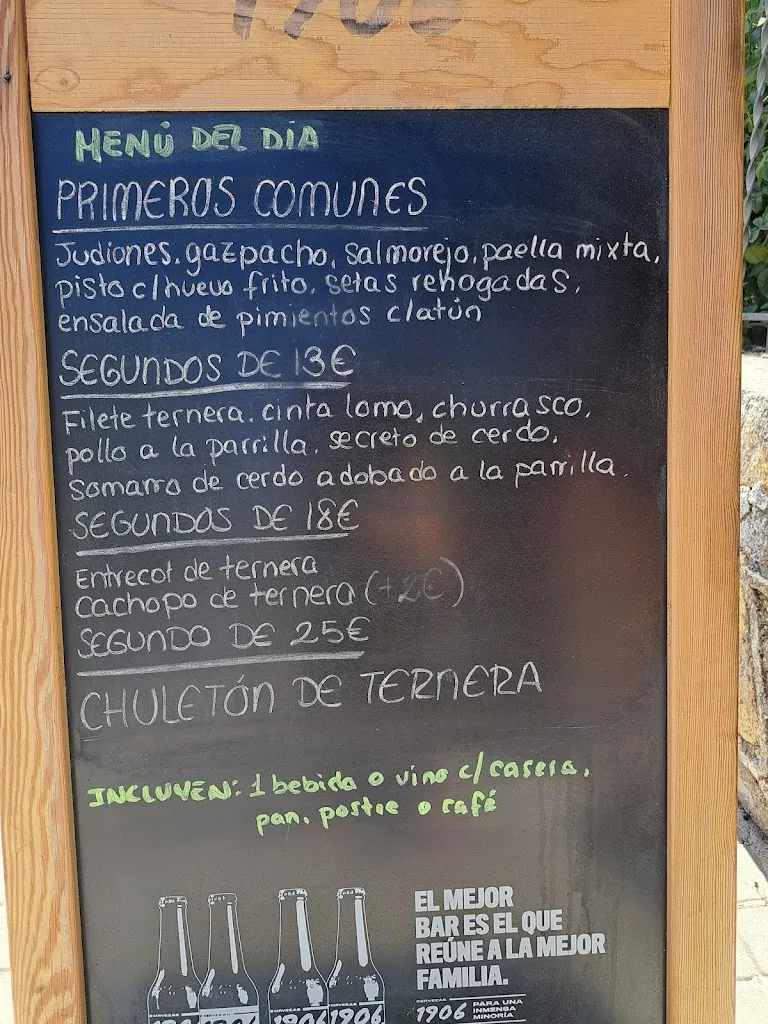 1906
MENÚ DEL DÍA
PRIMEROS COMUNES
Judiones, gazpacho, salmorejo, paella mixta,
pisto c/huevo frito, setas rehogadas,
ensalada de pimientos c/atún
SEGUNDOS DE 13€
Filete ternera, cinta lomo, churrasco,
pollo a la parrilla, secreto de cerdo,
Somarro de cerdo adobado a la parrilla.
SEGUNDOS DE 18€
Entrecot de ternera
Cachopo de ternera (+2€)
SEGUNDO DE 25€
CHULETÓN DE TERNERA
INCLUYEN: 1 bebida o vino c/casera,
pan, postre o café
EL MEJOR
BAR ES EL QUE
REÚNE A LA MEJOR
FAMILIA.
CERVEZAS
1906
PARA UNA
INMENSA
MINORÍA
CERVEZAS CERVEZAS CERVEZAS CERVEZAS
1906 1906 1906 1906